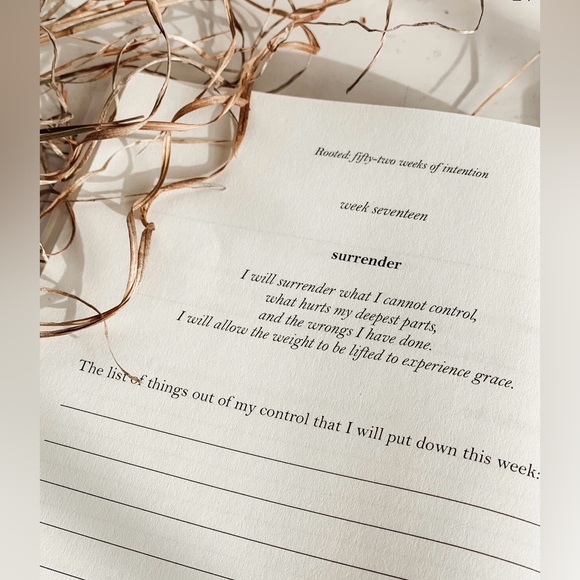 Rooted: fifty-two weeks of intention
week seventeen
surrender
I will surrender what I cannot control,
what hurts my deepest parts,
and the wrongs I have done.
I will allow the weight to be lifted to experience grace.
The list of things out of my control that I will put down this week: